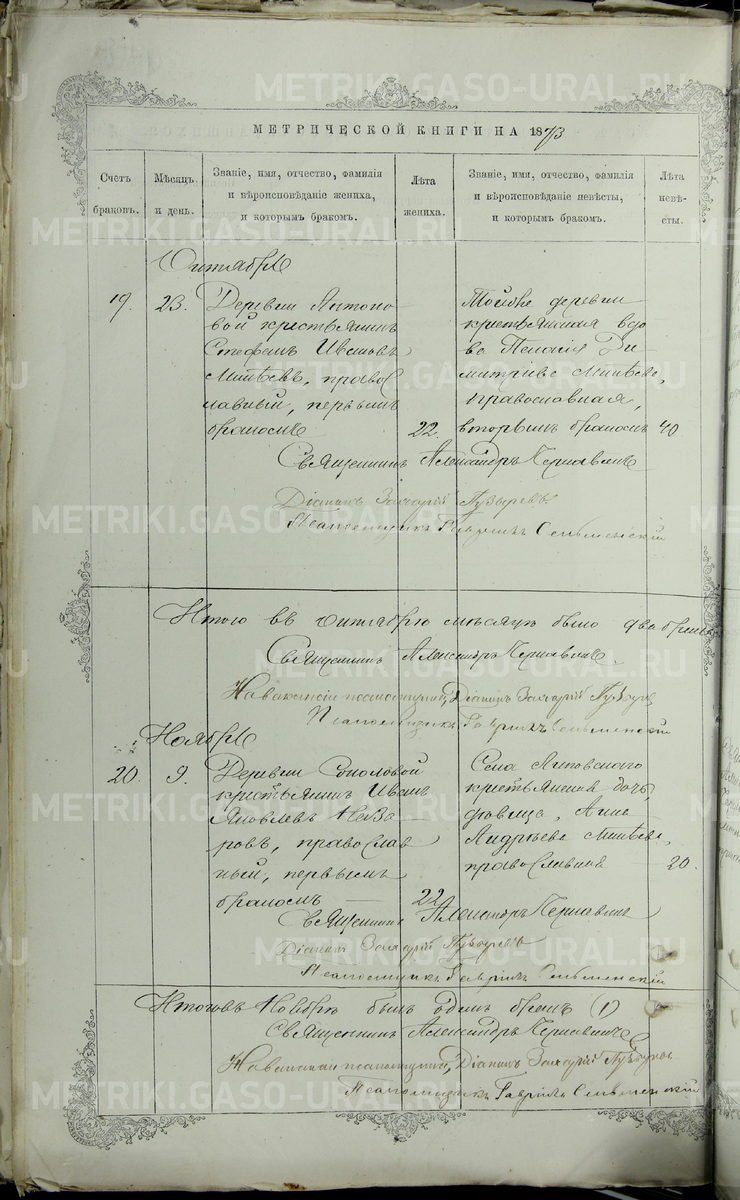 METRIKI.GASO-URAL.RU
МЕТРИЧЕСКОЙ КНИГИ НА 1873
Счетъ браковъ.
Мѣсяцъ и день.
Званіе, имя, отчество, фамилія и вѣроисповѣданіе жениха, и которымъ бракомъ.
Лѣта жениха.
Званіе, имя, отчество, фамилія и вѣроисповѣданіе невѣсты, и которымъ бракомъ.
Лѣта невѣсты.
Октябрь
19.
23.
Деревни Антоно
вой крестьянинъ
Стефанъ Ивановъ
Минѣевъ, право
славный, первымъ
бракомъ
22.
Тойже деревни
крестьянская вдо
ва Пелагія Ди
митріева Минѣева,
православная,
вторымъ бракомъ
40
Священникъ Александръ
Діаконъ Захарій Пузыревъ
Псаломщикъ Гавріилъ
Итого въ октябрѣ мѣсяцѣ было два брака
Священникъ Александръ
Діаконъ Захарій
Псаломщикъ Гавріилъ
Ноябрь
20.
9.
Деревни Соколовой
крестьянинъ Иванъ
Яковлевъ Наза
ровъ, православ
ный, первымъ
бракомъ
22
Села Липовскаго
крестьянская дочь,
дѣвица, Анна
Андреева Минѣева,
православная
20.
Священникъ Александръ
Діаконъ Захарій Пузыревъ
Псаломщикъ Гавріилъ
Итого въ Ноябрѣ былъ одинъ бракъ (1)
Священникъ Александръ
Діаконъ Захарій
Псаломщикъ Гавріилъ